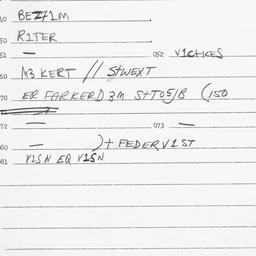 40 BEZ71M
50 R1TER
51 — 052 V1CHKES
60 M3 KERT // STWEXT
70 ER FARKERD 3M STTO5JB (150
72 — 073 —
80 — )+ FEDERV1ST
81 V1SN EQ V1SN